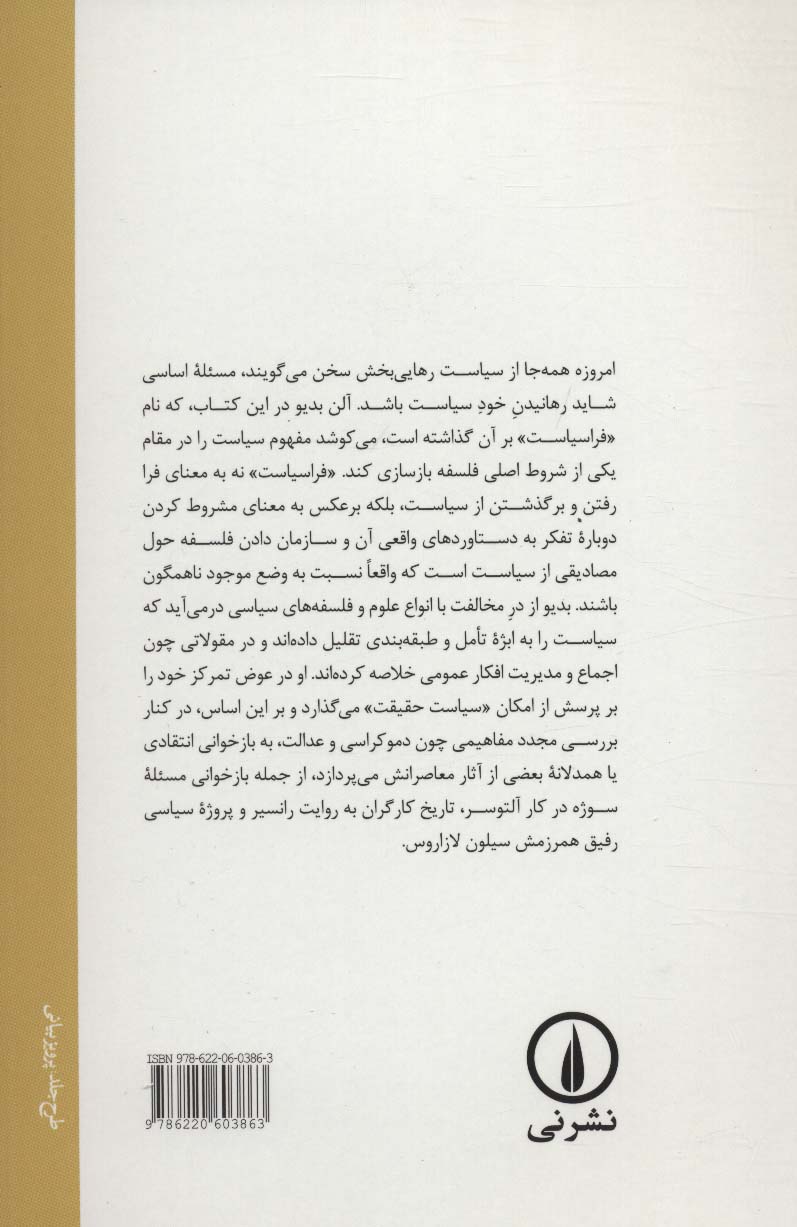 امروزه همه‌جا از سیاست رهایی‌بخش سخن می‌گویند، مسئلهٔ اساسی
شاید رهانیدنِ خودِ سیاست باشد. آلن بدیو در این کتاب، که نام
«فراسیاست» بر آن گذاشته است، می‌کوشد مفهوم سیاست را در مقام
یکی از شروط اصلی فلسفه بازسازی کند. «فراسیاست» نه به معنای فرا
رفتن و برگذشتن از سیاست، بلکه برعکس به معنای مشروط کردن
دوبارهٔ تفکر به دستاوردهای واقعی آن و سازمان دادن فلسفه حول
مصادیقی از سیاست است که واقعاً نسبت به وضع موجود ناهمگون
باشند. بدیو از درِ مخالفت با انواع علوم و فلسفه‌های سیاسی درمی‌آید که
سیاست را به ابژهٔ تأمل و طبقه‌بندی تقلیل داده‌اند و در مقولاتی چون
اجماع و مدیریت افکار عمومی خلاصه کرده‌اند. او در عوض تمرکز خود را
بر پرسش از امکان «سیاست حقیقت» می‌گذارد و بر این اساس، در کنار
بررسی مجدد مفاهیمی چون دموکراسی و عدالت، به بازخوانی انتقادی
یا همدلانهٔ بعضی از آثار معاصرانش می‌پردازد، از جمله بازخوانی مسئلهٔ
سوژه در کار آلتوسر، تاریخ کارگران به روایت رانسیر و پروژهٔ سیاسی
رفیق همرزمش سیلون لازاروس.
طرح جلد: پرویز بیانی
ISBN 978-622-06-0386-3
9 786220 603863
نشرنی